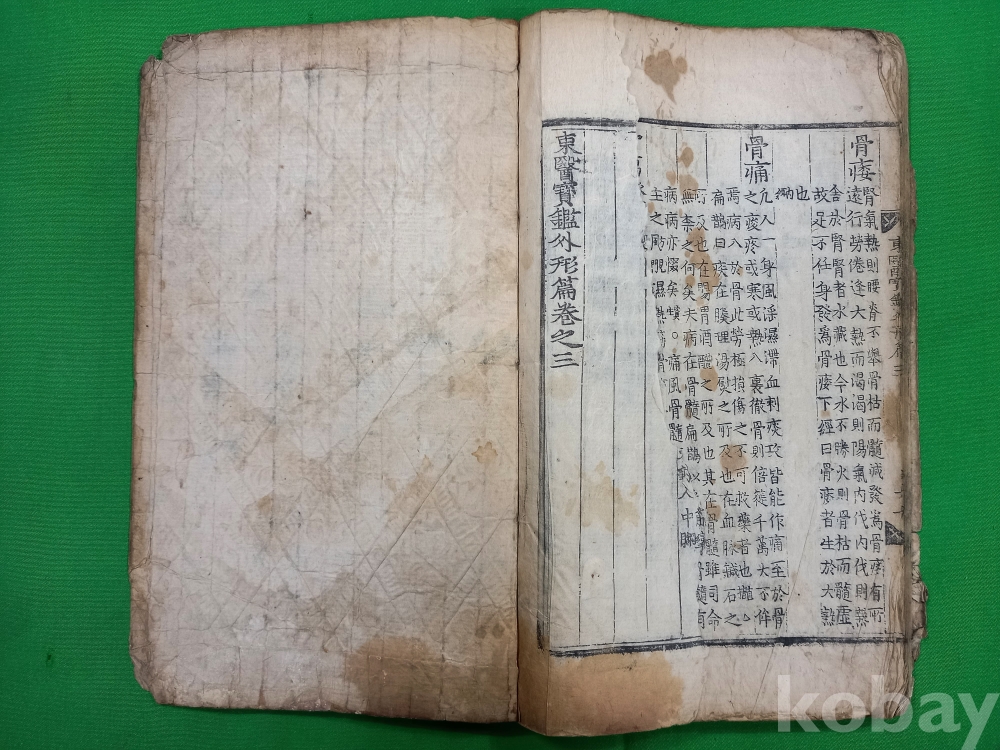 東
骨痿
腎氣熱則腰脊不擧骨枯而髓減發爲骨痿有所
遠行勞倦逢大熱而渴渴則陽氣內伐內伐則熱
舍於腎腎者水藏也今水不勝火則骨枯而髓虛
故足不任身發爲骨痿下經曰骨痿者生於大熱
也
骨痛
凡人一身風淫濕滯血刺痰攻皆能作痛至於骨
之痠疼或寒或熱入裏徹骨則倍蓰千萬大不侔
焉病入於骨此勞極損傷之不可救藥者也
扁鵲曰疾在腠理湯熨之所及也在血脉鍼石之
所及也在腸胃酒醪之所及也其在骨髓雖司命
無柰之何矣夫病在骨髓扁鵲以
病病亦 矣 ○痛風骨髓 病入中
主之 濕熱
東醫寶鑑外形篇卷之三
kobay